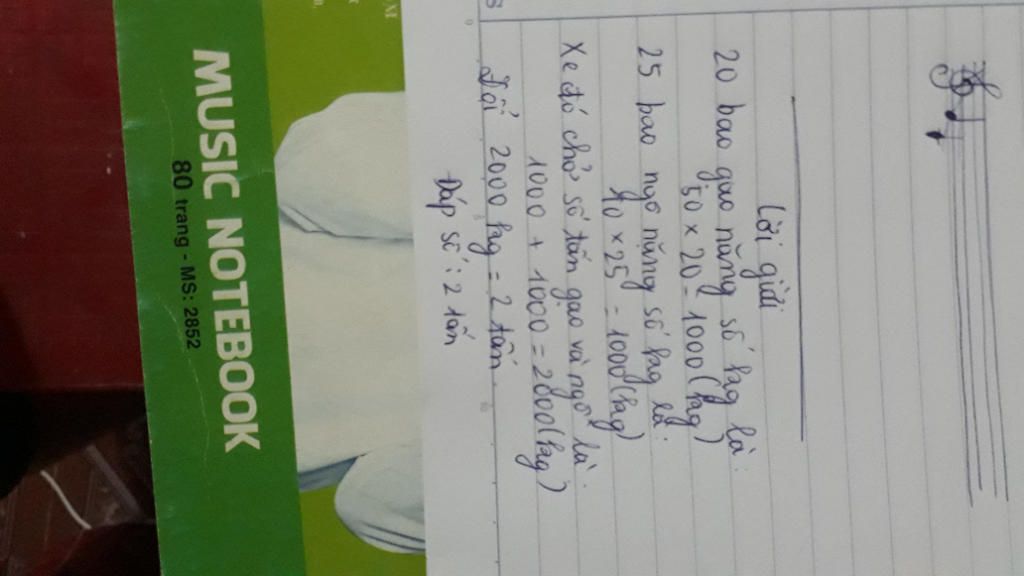 Lời giải
20 bao gạo nặng số kg là:
50 x 20 = 1000 (kg)
25 bao ngô nặng số kg là:
40 x 25 = 1000 (kg)
Xe đó chở số tấn gạo và ngô là.
1000 + 1000 = 2000 (kg)
Đổi 2000 kg = 2 tấn.
Đáp số : 2 tấn
MUSIC NOTEBOOK
80 trang - MS: 2852